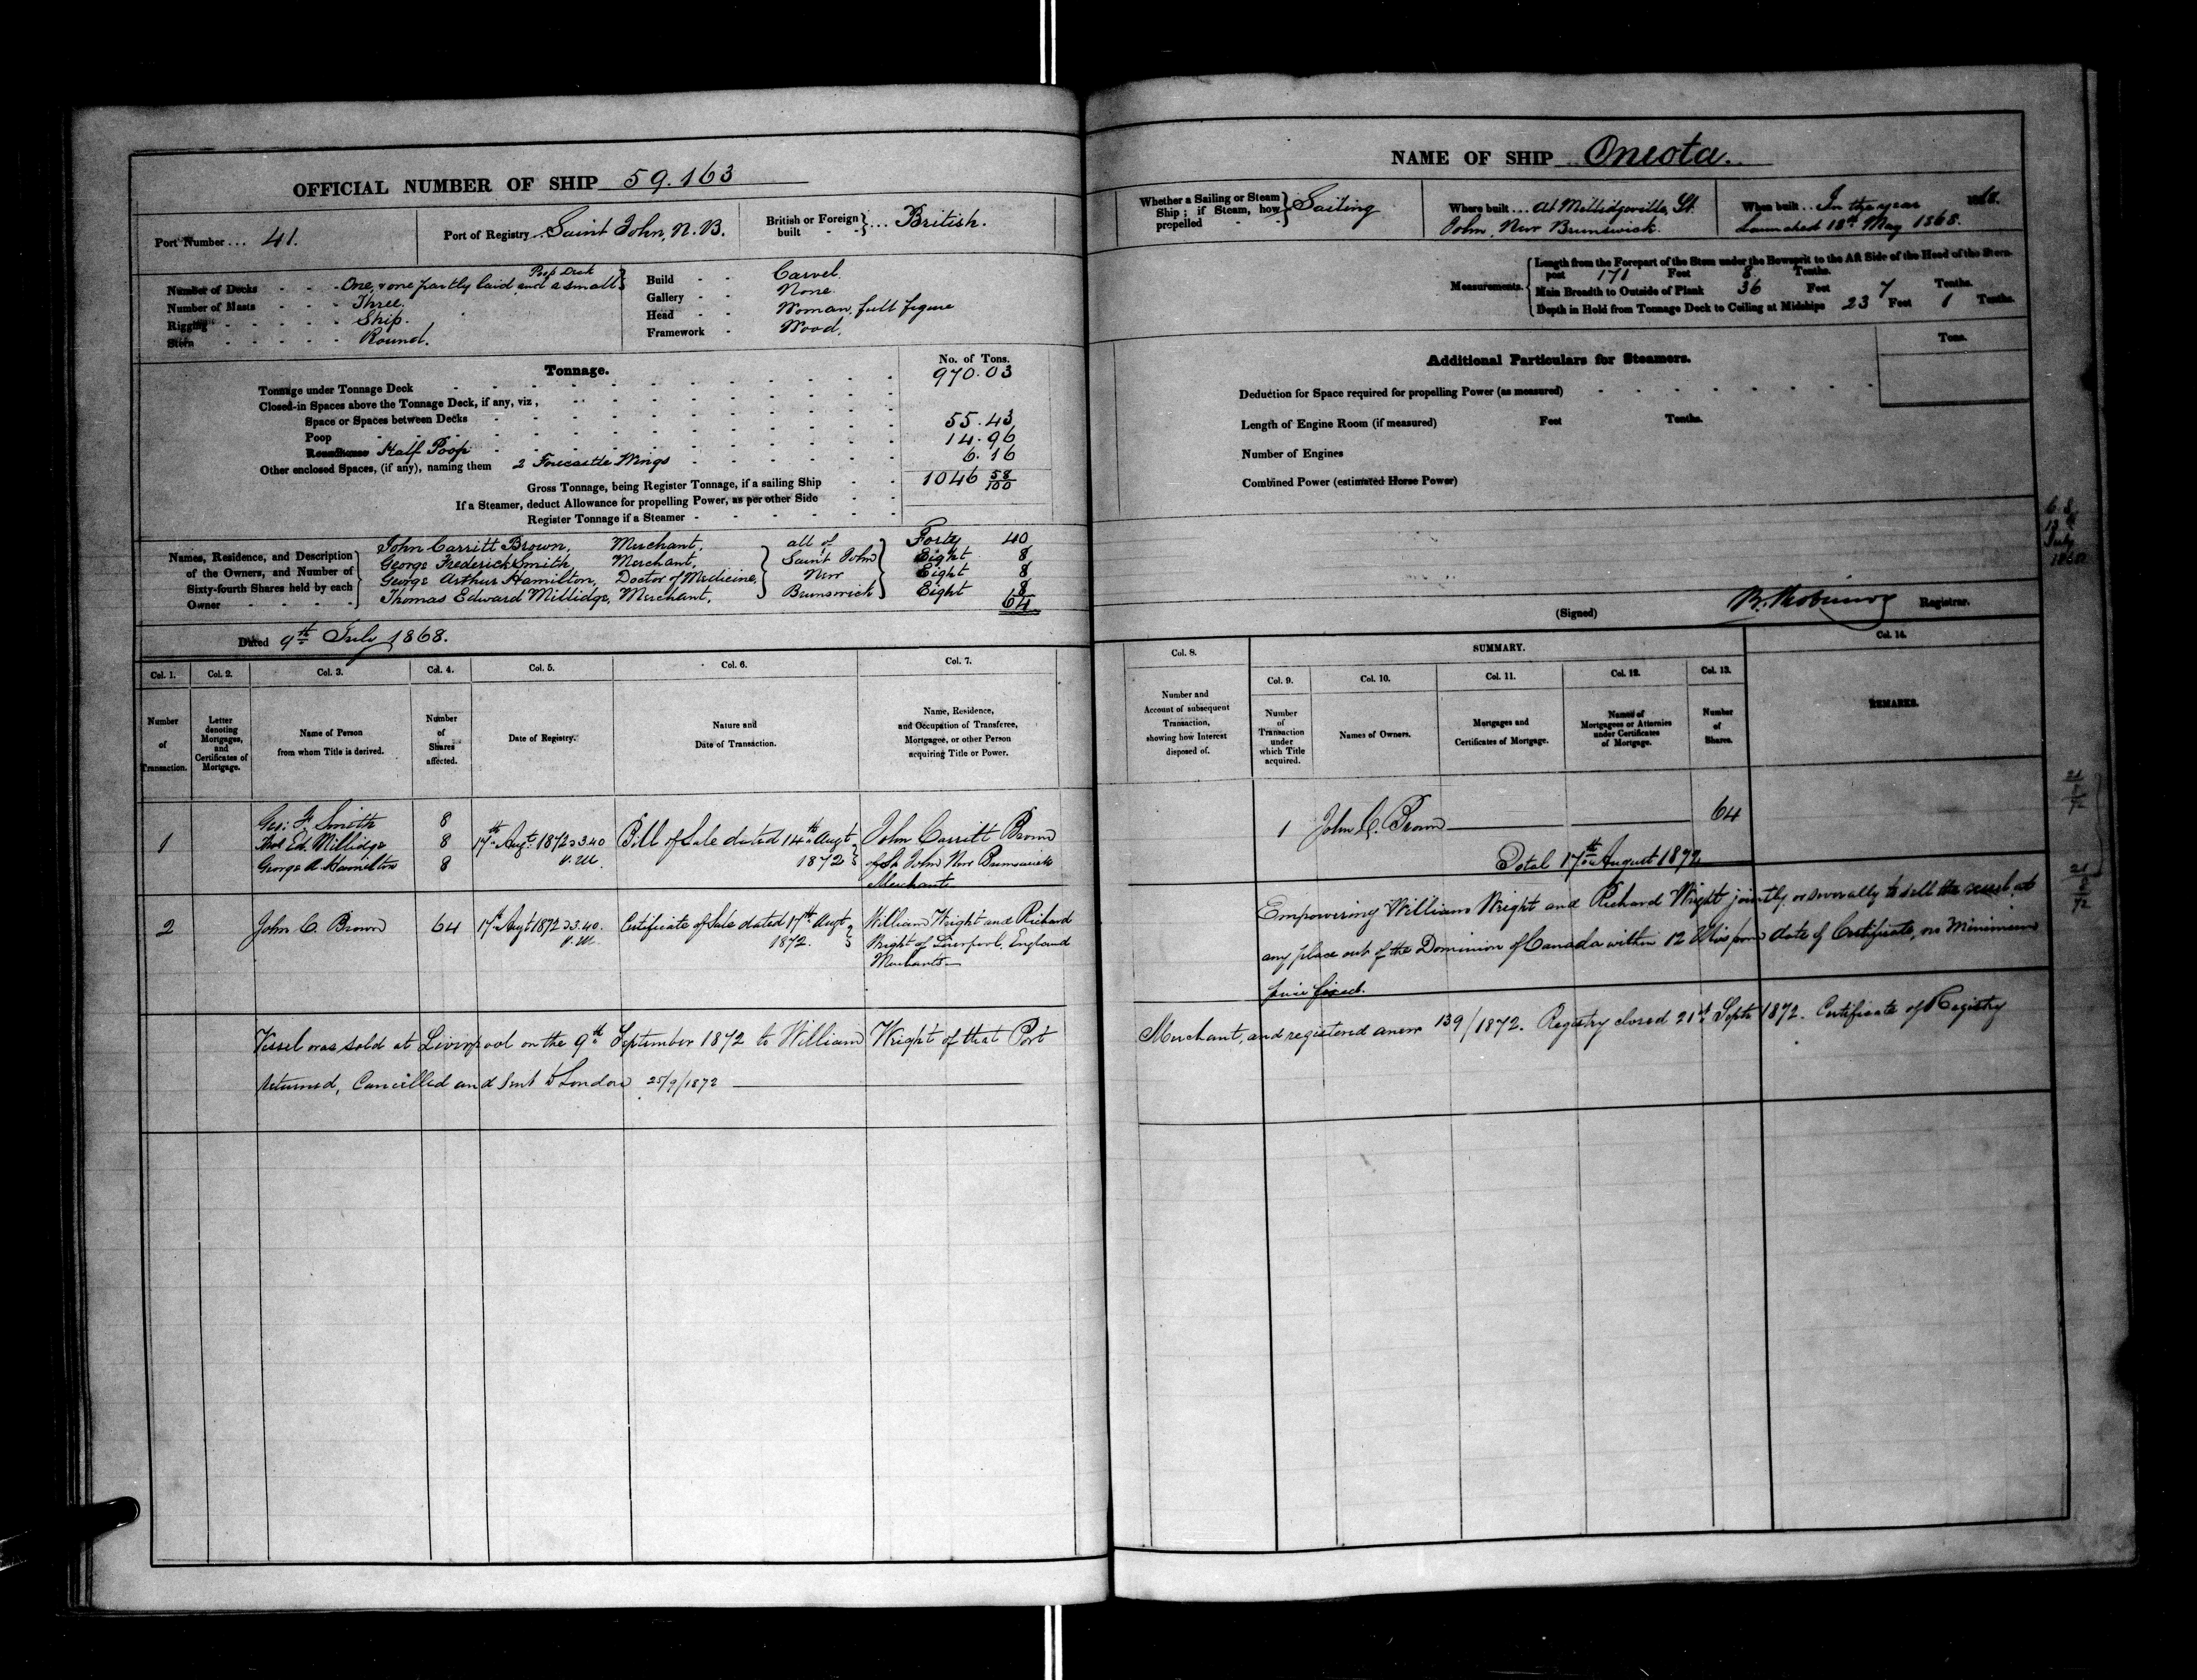 OFFICIAL NUMBER OF SHIP 59.163
Port Number ... 41.
Port of Registry Saint John, N.B.
British or Foreign built } ... British.
Number of Decks - - - One, & one partly laid and a small Poop Deck
Number of Masts - - Three.
Rigging - - - - - Ship.
Stern - - - - - Round.
Build - - Carvel.
Gallery - - None.
Head - - Woman, full figure
Framework - Wood.
Tonnage.
No. of Tons.
Tonnage under Tonnage Deck 970.03
Closed-in Spaces above the Tonnage Deck, if any, viz,
Space or Spaces between Decks
Poop 55.43
Roundhouse Half Poop 14.96
Other enclosed Spaces, (if any), naming them 2 Forecastle Wings 6.16
Gross Tonnage, being Register Tonnage, if a sailing Ship 1046 58/100
If a Steamer, deduct Allowance for propelling Power, as per other Side
Register Tonnage if a Steamer
Names, Residence, and Description of the Owners, and Number of Sixty-fourth Shares held by each Owner
John Carritt Brown, Merchant, Forty 40
George Frederick Smith, Merchant, Eight 8
George Arthur Hamilton, Doctor of Medicine, Eight 8
Thomas Edward Millidge, Merchant, Eight 8
all of Saint John New Brunswick
64
Dated 9th July 1868.
Col. 1. Col. 2. Col. 3. Col. 4. Col. 5. Col. 6. Col. 7.
Number of Transaction.
Letter denoting Mortgages, and Certificates of Mortgage.
Name of Person from whom Title is derived.
Number of Shares affected.
Date of Registry.
Nature and Date of Transaction.
Name, Residence, and Occupation of Transferee, Mortgagee, or other Person acquiring Title or Power.
1
Geo: F. Smith 8
Thos Ed. Millidge 8
George A. Hamilton 8
17th Augt 1872 3.40 P.M.
Bill of Sale dated 14th Augt 1872
John Carritt Brown
of St John New Brunswick
Merchant
2
John C. Brown 64
17th Augt 1872 3.40. P.M.
Certificate of Sale dated 17th Augt 1872.
William Wright and Richard
Wright of Liverpool, England
Merchants
Vessel was sold at Liverpool on the 9th September 1872 to William Wright of that Port
returned, Cancelled and sent to London 25/9/1872
NAME OF SHIP Oneota.
Whether a Sailing or Steam Ship; if Steam, how propelled } Sailing
Where built ... At Millidgeville, St.
John, New Brunswick.
When built ... In the year 1868.
Launched 18th May 1868.
Measurements.
Length from the Forepart of the Stem under the Bowsprit to the Aft Side of the Head of the Stern-
post 171 Feet 8 Tenths.
Main Breadth to Outside of Plank 36 Feet 7 Tenths.
Depth in Hold from Tonnage Deck to Ceiling at Midships 23 Feet 1 Tenths.
Additional Particulars for Steamers.
Tons.
Deduction for Space required for propelling Power (as measured)
Length of Engine Room (if measured) Feet Tenths.
Number of Engines
Combined Power (estimated Horse Power)
(Signed) Registrar.
Col. 8.
Number and Account of subsequent Transaction, showing how Interest disposed of.
SUMMARY.
Col. 9. Col. 10. Col. 11. Col. 12. Col. 13. Col. 14.
Number of Transaction under which Title acquired.
Names of Owners.
Mortgages and Certificates of Mortgage.
Names of Mortgagees or Attornies under Certificates of Mortgage.
Number of Shares.
REMARKS.
1 John C. Brown 64
Total 17th August 1872
Empowering William Wright and Richard Wright jointly or severally to sell the vessel at
any place out of the Dominion of Canada within 12 Mos from date of Certificate, no Minimum
price fixed.
Merchant, and registered anew 139/1872. Registry closed 21st Septr 1872. Certificate of Registry